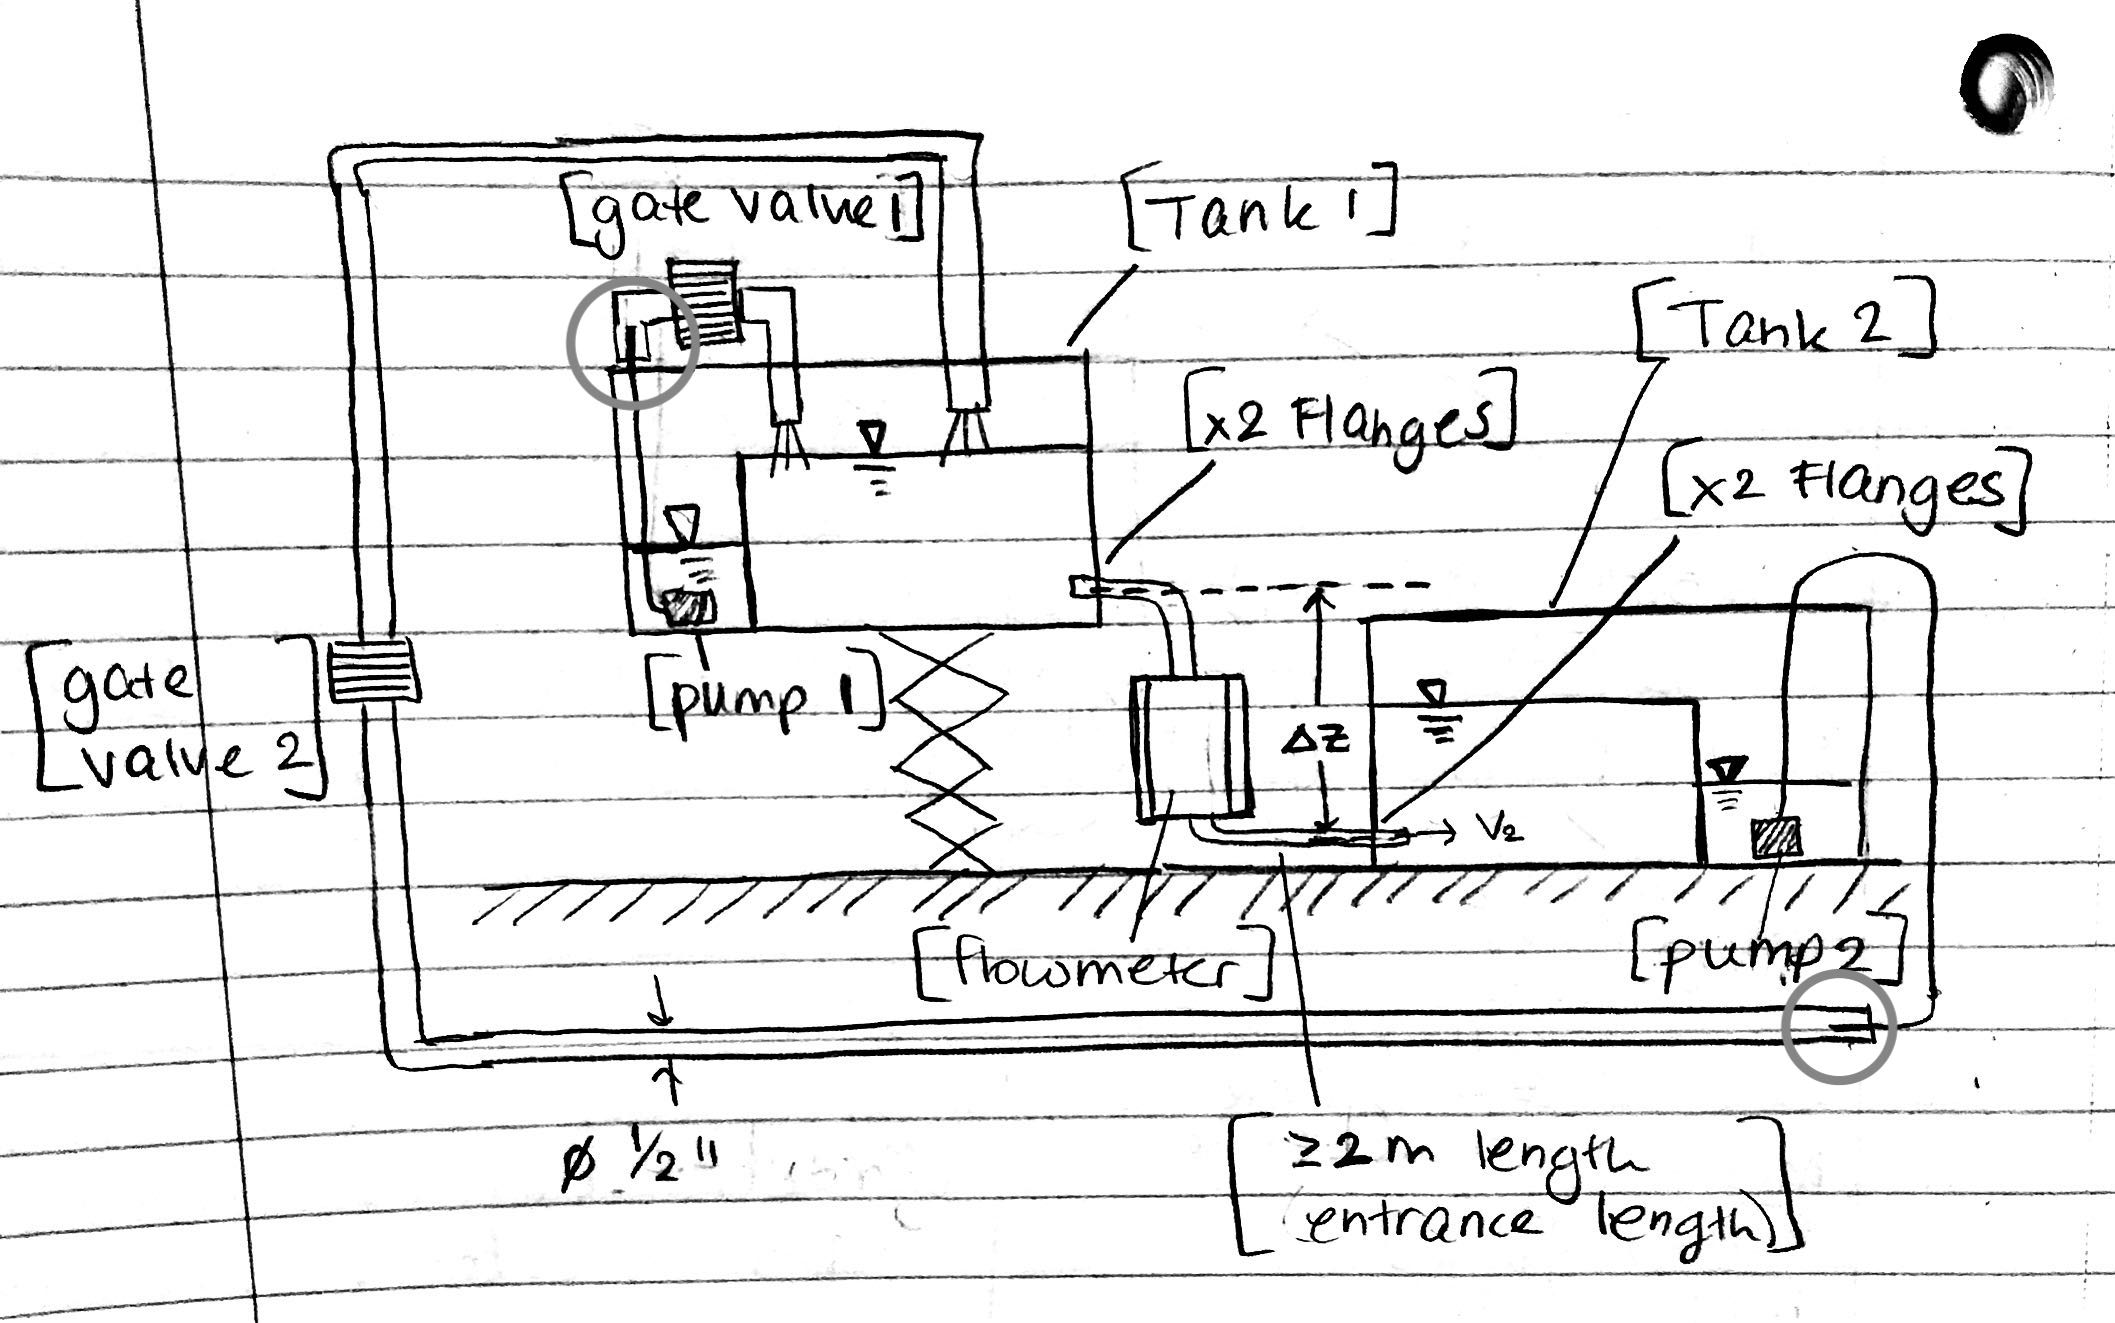 [gate valve 1]
[Tank 1]
[Tank 2]
[x2 Flanges]
[x2 Flanges]
[gate
valve 2]
[pump 1]
ΔZ
V2
[flowmeter]
[pump 2]
ø 1/2"
[≥2m length
(entrance length)]